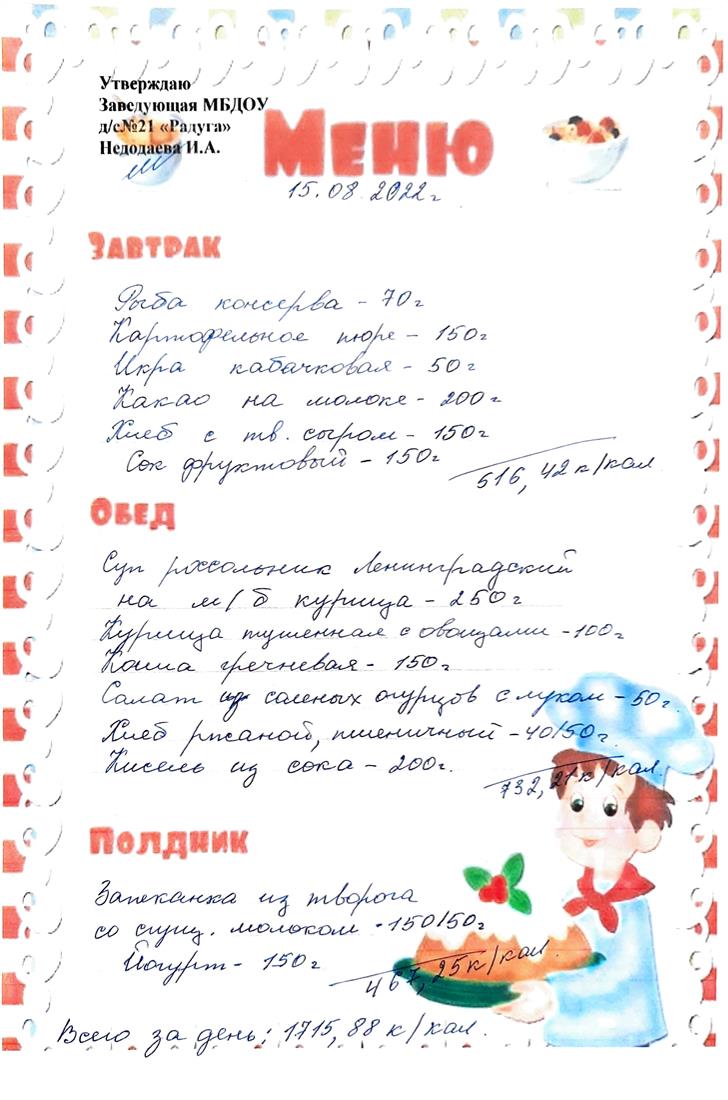 Утверждаю
Заведующая МБДОУ
д/с№21 «Радуга»
Недодаева И.А.
Меню
15.08.2022г
Завтрак
Рыба консерва - 70г
Картофельное пюре - 150г
Икра кабачковая - 50г
Какао на молоке - 200г
Хлеб с тв. сыром - 150г
Сок фруктовый - 150г
516,42 к/кал
Обед
Суп россольник Ленинградский
на м/б курица - 250г
Курица тушенная с овощами - 100г
Каша гречневая - 150г
Салат из соленых огурцов с луком - 50г.
Хлеб ржаной, пшеничный - 40/50г
Кисель из сока - 200г.
732,21 к/кал.
Полдник
Запеканка из творога
со сгущ. молоком - 150/50г
Йогурт - 150г
467,25 к/кал.
Всего за день: 1715,88 к/кал.